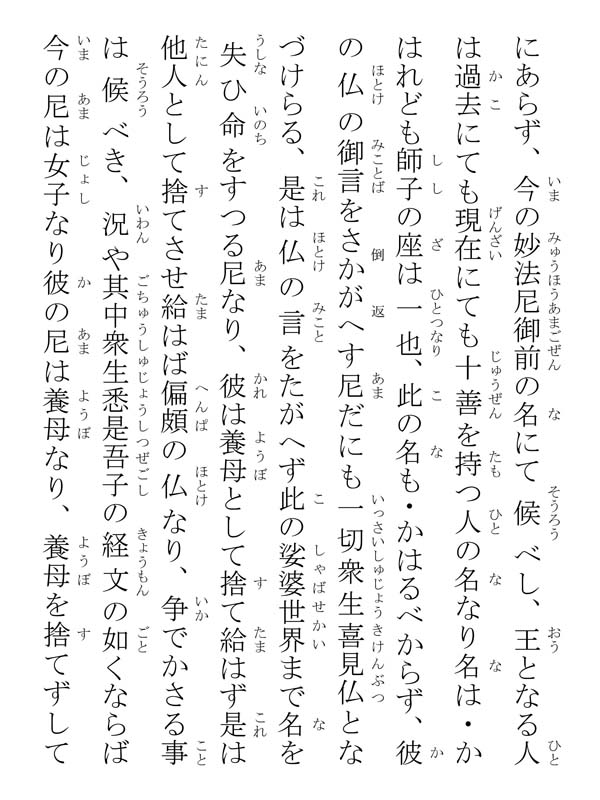 にあらず、今の妙法尼御前の名にて候べし、王となる人
は過去にても現在にても十善を持つ人の名なり名は・か
はれども師子の座は一也、此の名も・かはるべからず、彼
の仏の御言をさかがへす尼だにも一切衆生喜見仏とな
づけらる、是は仏の言をたがへず此の娑婆世界まで名を
失ひ命をすつる尼なり、彼は養母として捨て給はず是は
他人として捨てさせ給はば偏頗の仏なり、争でかさる事
は候べき、況や其中衆生悉是吾子の経文の如くならば
今の尼は女子なり彼の尼は養母なり、養母を捨てずして